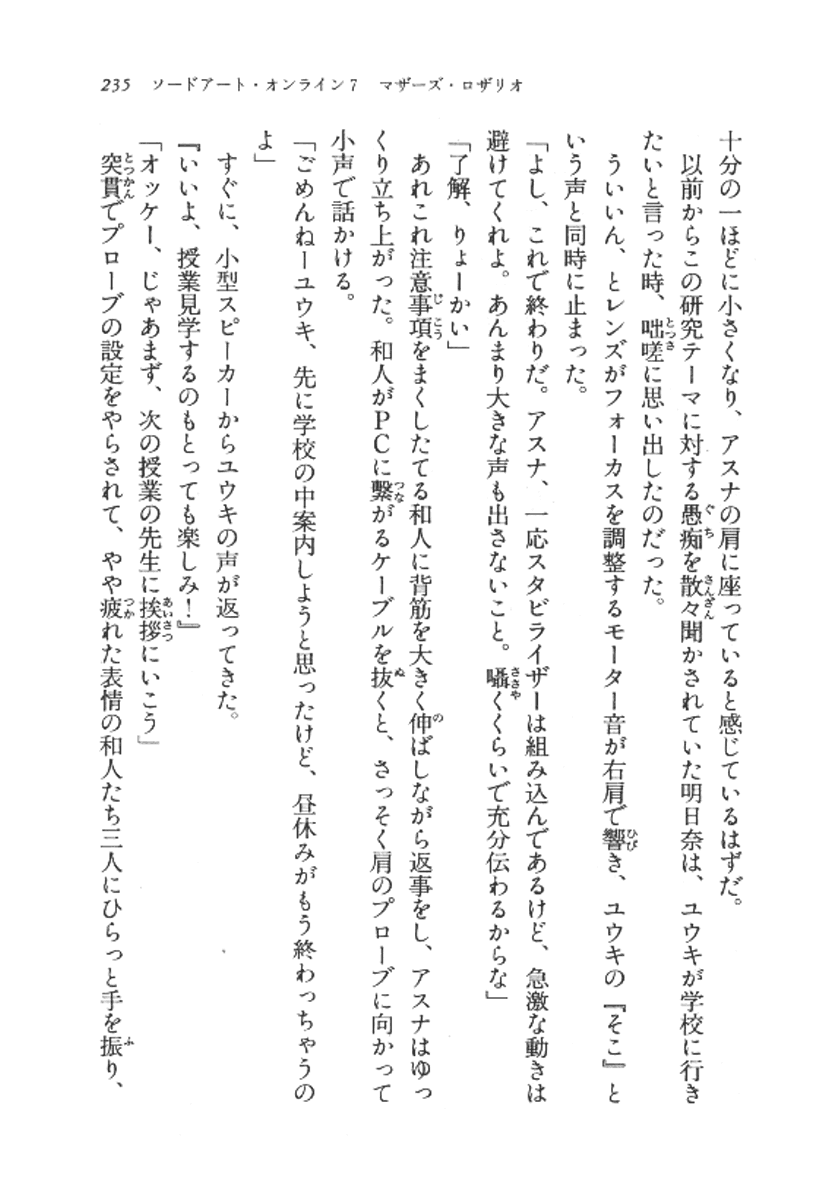 235　ソードアート・オンライン7　マザーズ・ロザリオ
十分の一ほどに小さくなり、アスナの肩に座っていると感じているはずだ。
　以前からこの研究テーマに対する愚痴を散々聞かされていた明日奈は、ユウキが学校に行き
たいと言った時、咄嗟に思い出したのだった。
　ういいん、とレンズがフォーカスを調整するモーター音が右肩で響き、ユウキの『そこ』と
いう声と同時に止まった。
「よし、これで終わりだ。アスナ、一応スタビライザーは組み込んであるけど、急激な動きは
避けてくれよ。あんまり大きな声も出さないこと。囁くくらいで充分伝わるからな」
「了解、りょーかい」
　あれこれ注意事項をまくしたてる和人に背筋を大きく伸ばしながら返事をし、アスナはゆっ
くり立ち上がった。和人がPCに繋がるケーブルを抜くと、さっそく肩のプローブに向かって
小声で話かける。
「ごめんねーユウキ、先に学校の中案内しようと思ったけど、昼休みがもう終わっちゃうの
よ」
　すぐに、小型スピーカーからユウキの声が返ってきた。
『いいよ、授業見学するのもとっても楽しみ！』
「オッケー、じゃあまず、次の授業の先生に挨拶にいこう」
　突貫でプローブの設定をやらされて、やや疲れた表情の和人たち三人にひらっと手を振り、